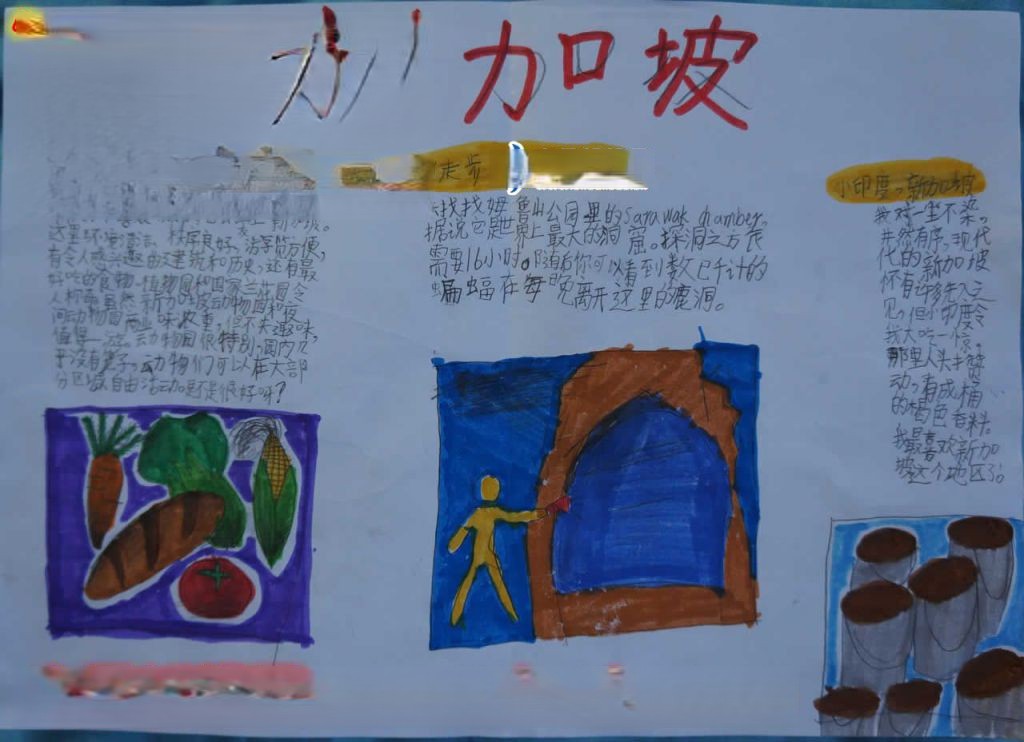 加坡
走步
这里环境清洁,秩序良好,游客简方便,
有令人感兴趣的建筑和历史,还有最
好吃的食物。植物园和国家兰花园令
人称奇。虽然新加坡动物园和夜
间动物园商业味浓重,但不失趣味,
值得一游。动物园很特别,园内几
乎没有笼子,动物们可以在大部
分区域自由活动。还是很好呀?
找找姆鲁山公园里的Sarawak chamber,
据说它是世界上最大的洞窟。探洞之旅
需要16小时。随后你可以看到数已千计的
蝙蝠在每晚离开这里的鹿洞。
小印度,新加坡
我对一尘不染,
井然有序,现代
代的新加坡
怀有许多先入之
见,但小印度令
我大吃一惊。
那里人头攒
动,有成桶
的褐色香料。
我最喜欢新加
坡这个地区了。